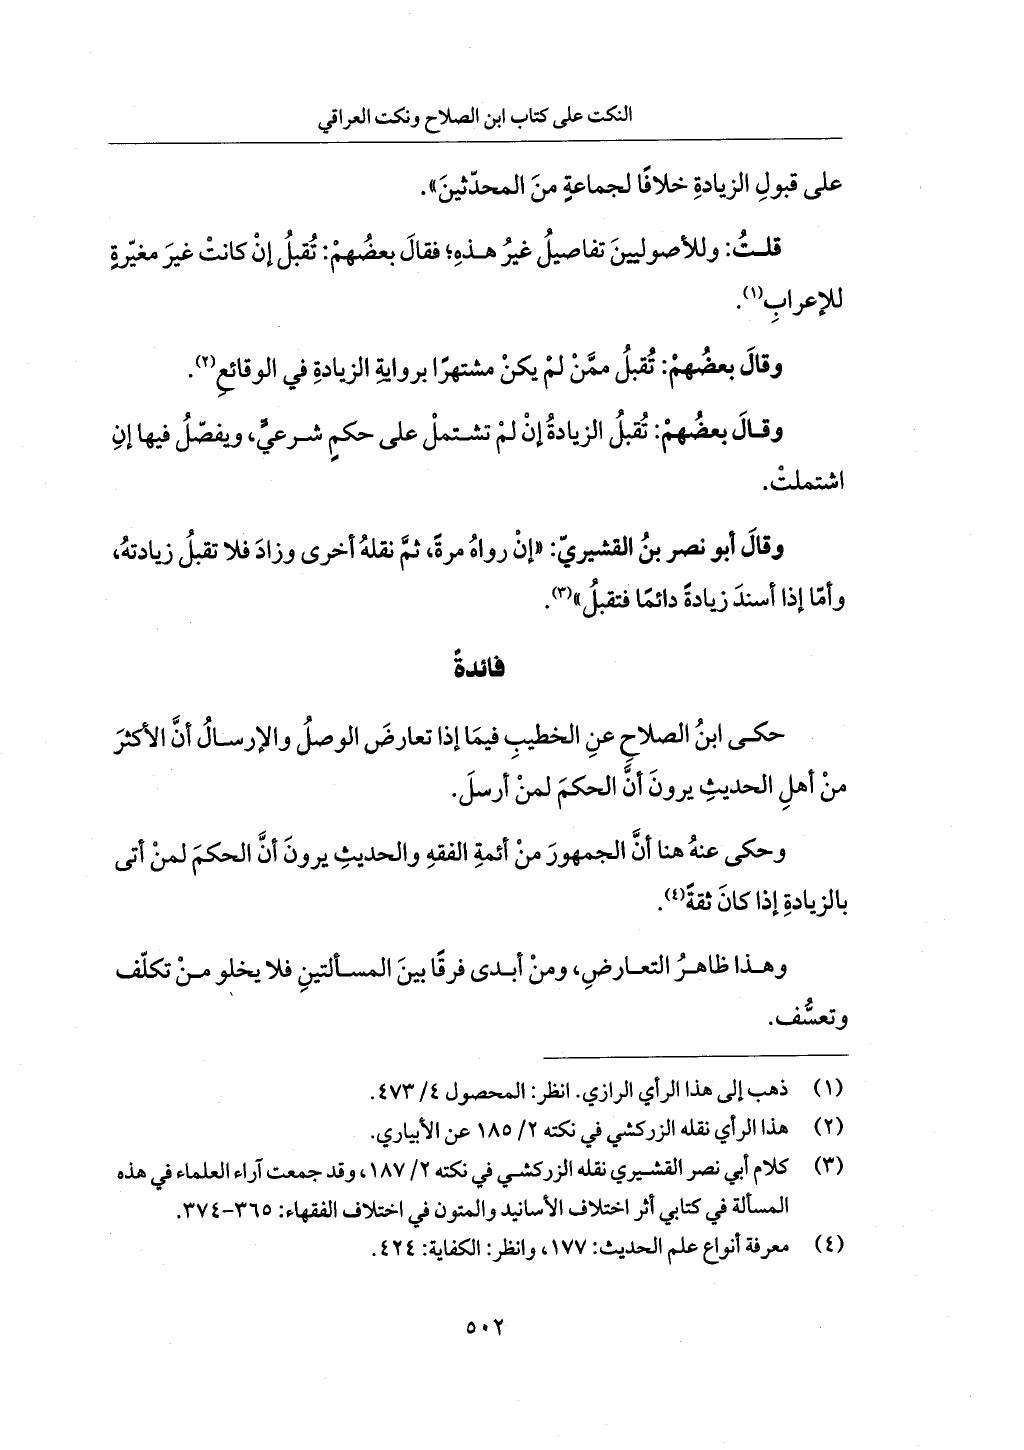 النكت على كتاب ابن الصلاح ونكت العراقي
على قبولِ الزيادةِ خلافًا لجماعةٍ منَ المحدّثينَ».
قلتُ: وللأصوليينَ تفاصيلُ غيرُ هذهِ؛ فقالَ بعضُهمْ: تُقبلُ إنْ كانتْ غيرَ مغيّرةٍ
للإعرابِ(١).
وقالَ بعضُهمْ: تُقبلُ ممَّنْ لمْ يكنْ مشتهرًا بروايةِ الزيادةِ في الوقائعِ(٢).
وقالَ بعضُهمْ: تُقبلُ الزيادةُ إنْ لمْ تشتملْ على حكمٍ شرعيٍّ، ويفصّلُ فيها إنِ
اشتملتْ.
وقالَ أبو نصر بنُ القشيريّ: «إنْ رواهُ مرةً، ثمَّ نقلهُ أخرى وزادَ فلا تقبلُ زيادتهُ،
وأمّا إذا أسندَ زيادةً دائمًا فتقبلُ»(٣).
فائدةً
حكى ابنُ الصلاحِ عنِ الخطيبِ فيمَا إذا تعارضَ الوصلُ والإرسالُ أنَّ الأكثرَ
منْ أهلِ الحديثِ يرونَ أنَّ الحكمَ لمنْ أرسلَ.
وحكى عنهُ هنا أنَّ الجمهورَ منْ أئمةِ الفقهِ والحديثِ يرونَ أنَّ الحكمَ لمنْ أتى
بالزيادةِ إذا كانَ ثقةً(٤).
وهذا ظاهرُ التعارضِ، ومنْ أبدى فرقًا بينَ المسألتينِ فلا يخلو منْ تكلّف
وتعسُّف.
(١) ذهب إلى هذا الرأي الرازي. انظر: المحصول ٤/ ٤٧٣.
(٢) هذا الرأي نقله الزركشي في نكته ٢/ ١٨٥ عن الأبياري.
(٣) كلام أبي نصر القشيري نقله الزركشي في نكته ٢/ ١٨٧، وقد جمعت آراء العلماء في هذه
المسألة في كتابي أثر اختلاف الأسانيد والمتون في اختلاف الفقهاء: ٣٦٥-٣٧٤.
(٤) معرفة أنواع علم الحديث: ١٧٧، وانظر: الكفاية: ٤٢٤.
٥٠٢